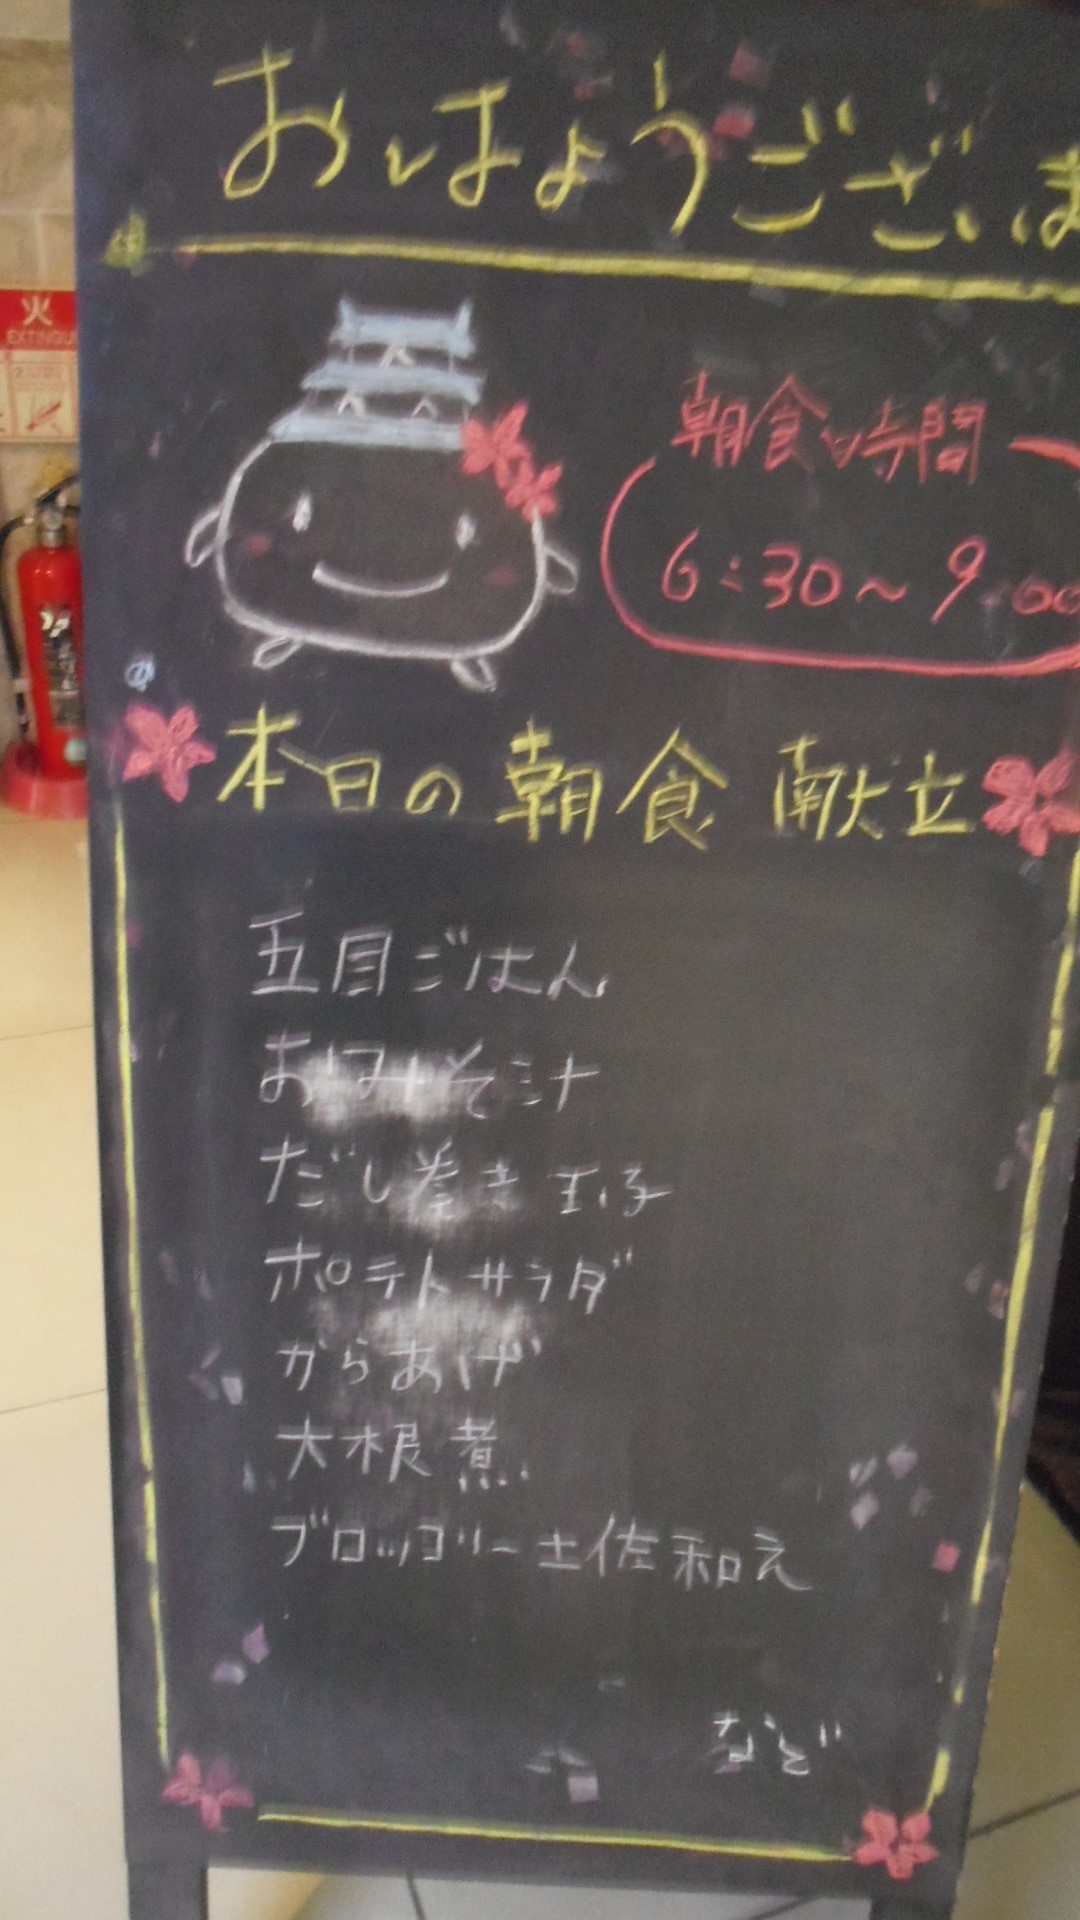 おはようございま
火
EXTINGU
朝食時間
6:30～9:00
本日の朝食献立
五目ごはん
おみそ汁
だし巻き玉子
ポテトサラダ
からあげ
大根煮
ブロッコリー土佐和え
など